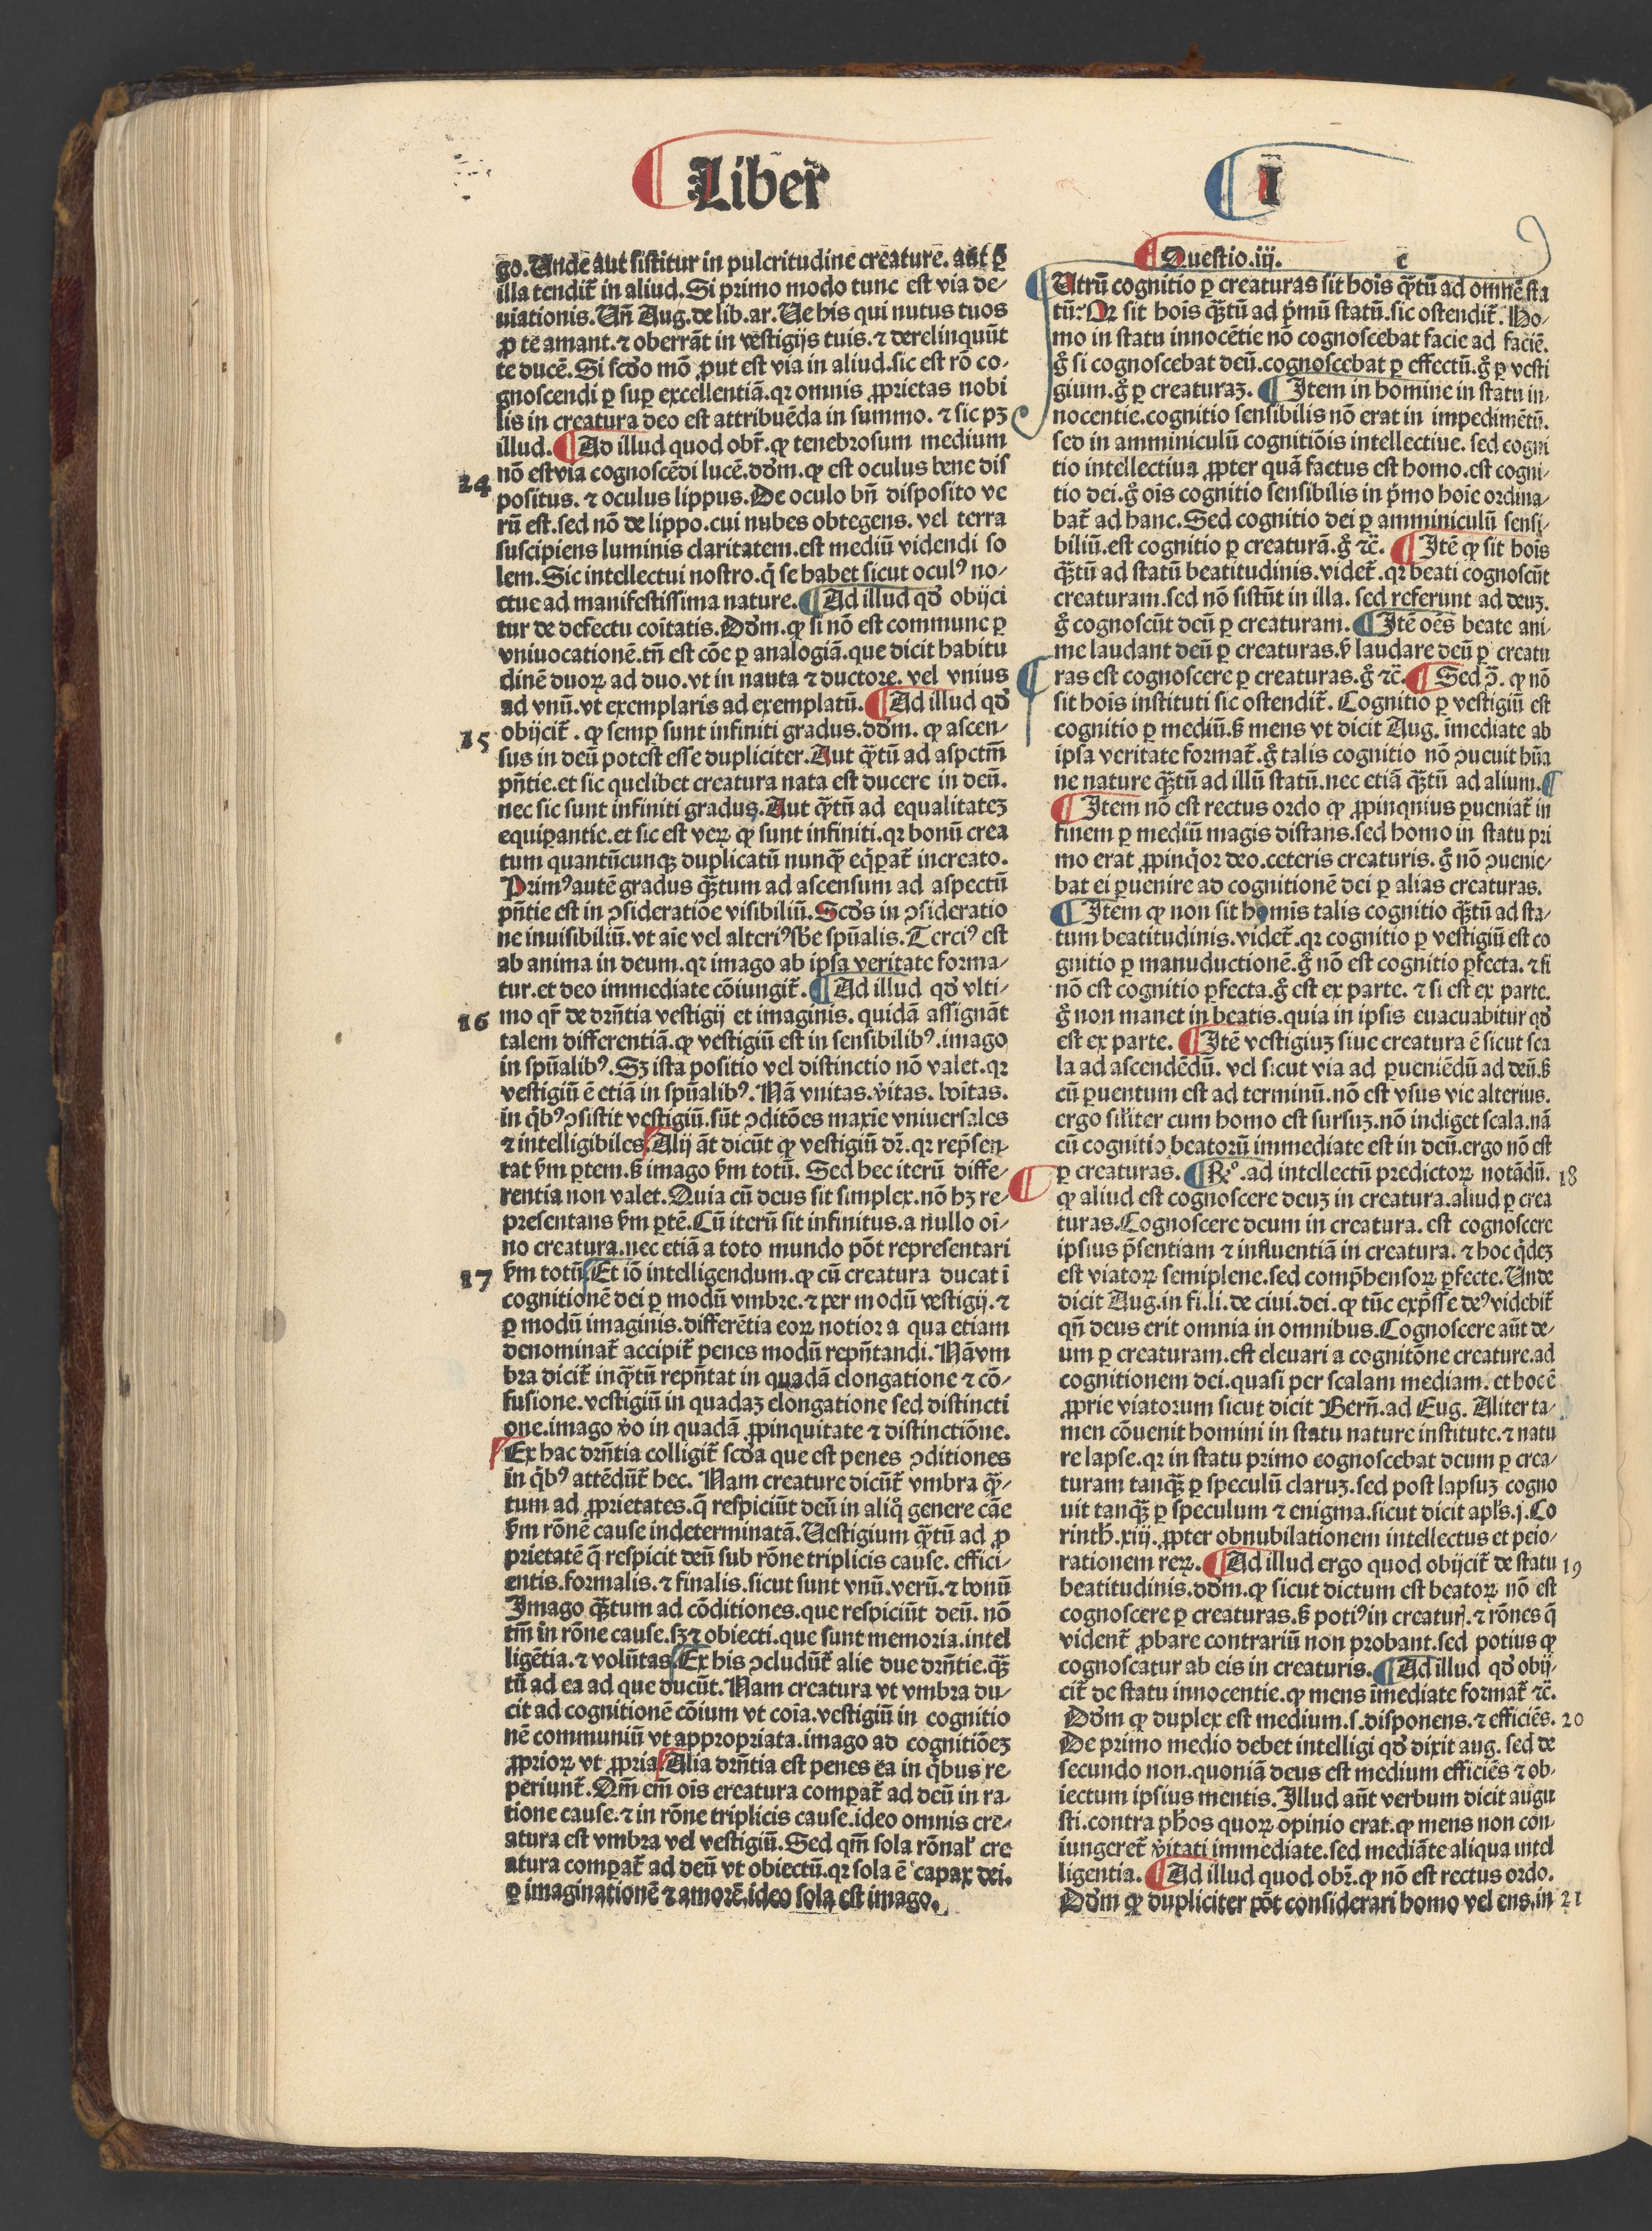 Liber
I
go. Unde aut sistitur in pulcritudine creature. aut ꝑ
illa tendit̃ in aliud. Si primo modo tunc est via de⸗
uiationis. Un̄ Aug. de lib. ar. Ue his qui nutus tuos
ꝓ te amant. ⁊ oberrāt in vestigijs tuis. ⁊ derelinquūt
te ducē. Si scd̓o mō ꝓut est via in aliud. sic est rō co⸗
gnoscendi ꝑ suꝑ excellentiā. qꝛ omnis ꝓprietas nobi
lis in creatura deo est attribuēda in summo. ⁊ sic pꝫ
illud. ¶ Ad illud quod obr̃. ꝙ tenebrosum medium
nō est via cognoscēdi lucē. dd̓m. ꝙ est oculus bene dis
14
positus. ⁊ oculus lippus. De oculo bn̄ disposito ve
rū est. sed nō de lippo. cui nubes obtegens. vel terra
suscipiens luminis claritatem. est mediū videndi so
lem. Sic intellectui nostro. q̇ se habet sicut oculꝰ no⸗
ctue ad manifestissima nature. ¶ Ad illud qd̓ obijci
tur de defectu coītatis. Dd̓m. ꝙ si nō est commune ꝑ
vniuocationē. tn̄ est cōe ꝑ analogiā. que dicit habitu
dinē duoꝝ ad duo. vt in nauta ⁊ ductore. vel vnius
ad vnū. vt exemplaris ad exemplatū. ¶ Ad illud qd̓
obijcit̃. ꝙ semꝑ sunt infiniti gradus. dd̓m. ꝙ ascen⸗
15
sus in deū potest esse dupliciter. Aut q̄tū ad aspctm̄
pn̄tie. et sic quelibet creatura nata est ducere in deū.
nec sic sunt infiniti gradus. Aut q̄tū ad equalitateꝫ
equiꝑantie. et sic est veꝝ ꝙ sunt infiniti. qꝛ bonū crea
tum quantūcunqꝫ duplicatū nunq̄ȝ eq̇ꝑat̃ increato.
Primꝰ autē gradus q̄ȝtum ad ascensum ad aspectū
pn̄tie est in ↄsideratiōe visibiliū. Scd̓s in ↄsideratio
ne inuisibiliū. vt aīe vel alteriꝰ sb̄e spūalis. Terciꝰ est
ab anima in deum. qꝛ imago ab ipsa veritate forma⸗
tur. et deo immediate cōiungit̃. ¶ Ad illud qd̓ vlti⸗
16
mo qr̃ de dr̄ntia vestigij et imaginis. quidā assignāt
talem differentiā. ꝙ vestigiū est in sensibilibꝰ. imago
in spūalibꝰ. Sꝫ ista positio vel distinctio nō valet. qꝛ
vestigiū ē etiā in spūalibꝰ. Nā vnitas. v̓itas. bōitas.
in q̇bꝰ ↄsistit vestigiū. sūt ↄditōes maxīe vniuersales
⁊ intelligibiles. Alij āt dicūt ꝙ vestigiū dr̄. qꝛ rep̄sen⸗
tat ẜm ꝑtem. ß imago ẜm totū. Sed hec iterū diffe⸗
rentia non valet. Quia cū deus sit simplex. nō hꝫ re⸗
presentans ẜm ꝑtē. Cū iterū sit infinitus. a nullo oī⸗
no creatura. nec etiā a toto mundo pōt representari
17
ẜm totū. Et iō intelligendum. ꝙ cū creatura ducat ī
cognitionē dei ꝑ modū vmbre. ⁊ per modū vestigij. ⁊
ꝑ modū imaginis. differētia eoꝝ notiora qua etiam
denominat̃ accipit̃ penes modū repn̄tandi. Nā vm
bra dicit̃ inq̄tū repn̄tat in quadā elongatione ⁊ cō⸗
fusione. vestigiū in quadaꝫ elongatione sed distincti
one. imago v̓o in quadā ꝓpinquitate ⁊ distinctiōne.
Ex hac dr̄ntia colligit̃ scd̓a que est penes ↄditiones
in q̇bꝰ attēdūt̃ hec. Nam creature dicūt̃ vmbra q̄⸗
tum ad ꝓprietates. q̄ respiciūt deū in aliq̊ genere cāe
ẜm rōnē cause indeterminatā. Uestigium q̄tū ad ꝓ
prietatē q̄ respicit deū sub rōne triplicis cause. effici⸗
entis. formalis. ⁊ finalis. sicut sunt vnū. verū. ⁊ bonū
Imago q̄ȝtum ad cōditiones. que respiciūt deū. nō
tm̄ in rōne cause. sꝫ ⁊ obiecti. que sunt memoria. intel
ligētia. ⁊ volūtas. Ex his ↄcludūt̃ alie due dr̄ntie. q̄ȝ
tū ad ea ad que ducūt. Nam creatura vt vmbra du⸗
cit ad cognitionē cōium vt coīa. vestigiū in cognitio
nē communiū vt appropriata. imago ad cognitiōeꝫ
ꝓprioꝝ vt ꝓpria. Alia dr̄ntia est penes ea in q̇bus re⸗
periunt̃. Qm̄ em̄ oīs creatura comꝑat̃ ad deū in ra⸗
tione cause. ⁊ in rōne triplicis cause. ideo omnis cre⸗
atura est vmbra vel vestigiū. Sed qm̄ sola rōnal̓ cre
atura comꝑat̃ ad deū vt obiectū. qꝛ sola ē capax dei.
ꝑ imaginationē ⁊ amorē. ideo sola est imago.
¶ Questio.iij. c
Utrū cognitio ꝑ creaturas sit hoīs q̄tū ad omnē sta
tū: Qꝛ sit hoīs q̄ȝtū ad p̓mū statū. sic ostendit̃. Ho⸗
mo in statu innocētie nō cognoscebat facie ad faciē.
g̊ si cognoscebat deū. cognoscebat ꝑ effectū. g̊ ꝑ vesti
gium. g̊ ꝑ creaturaꝫ. ¶ Item in homine in statu in⸗
nocentie. cognitio sensibilis nō erat in impedimētū.
sed in amminiculū cognitiōis intellectiue. sed cogni
tio intellectiua ꝓpter quā factus est homo. est cogni⸗
tio dei. g̊ oīs cognitio sensibilis in p̓mo hoīe ordina⸗
bat̃ ad hanc. Sed cognitio dei ꝑ amminiculū sensi⸗
biliū. est cognitio ꝑ creaturā. g̊ ⁊c̄. ¶ Itē ꝙ sit hoīs
q̄ȝtū ad statū beatitudinis. videt̃. qꝛ beati cognoscūt
creaturam. sed nō sistūt in illa. sed referunt ad deuꝫ.
g̊ cognoscūt deū ꝑ creaturam. ¶ Itē oēs beate ani⸗
me laudant deū ꝑ creaturas. ẜ laudare deū ꝑ creatu
ras est cognoscere ꝑ creaturas. g̊ ⁊c̄. ¶ Sed ↄ̄. ꝙ nō
sit hoīs instituti sic ostendit̃. Cognitio ꝑ vestigiū est
cognitio ꝑ mediū. ß mens vt dicit Aug. īmediate ab
ipsa veritate format̃. g̊ talis cognitio nō ↄueuit hūa
ne nature q̄ȝtū ad illū statū. nec etiā q̄ȝtū ad alium. ¶
¶ Item nō est rectus ordo ꝙ ꝓpinqnius ꝑueniat̃ in
finem ꝑ mediū magis distans. sed homo in statu pri
mo erat ꝓpinq̇or deo. ceteris creaturis. g̊ nō ↄuenie⸗
bat ei ꝑuenire ad cognitionē dei ꝑ alias creaturas.
¶ Item ꝙ non sit homīs talis cognitio q̄ȝtū ad sta⸗
tum beatitudinis. videt̃. qꝛ cognitio ꝑ vestigiū est co
gnitio ꝑ manuductionē. g̊ nō est cognitio ꝑfecta. ⁊ si
nō est cognitio ꝑfecta. g̊ est ex parte. ⁊ si est ex parte.
g̊ non manet in beatis. quia in ipsis euacuabitur qd̓
est ex parte. ¶ Itē vestigiuꝫ siue creatura ē sicut sca
la ad ascendēdū. vel sicut via ad ꝑueniēdū ad deū. ß
cū ꝑuentum est ad terminū. nō est vsus vie alterius.
ergo sil̓iter cum homo est sursuꝫ. nō indiget scala. nā
cū cognitio beatorū immediate est in deū. ergo nō est
ꝑ creaturas. ¶ Rº. ad intellectū predictoꝝ notādū.
18
ꝙ aliud est cognoscere deuꝫ in creatura. aliud ꝑ crea
turas. Cognoscere deum in creatura. est cognoscere
ipsius p̄sentiam ⁊ influentiā in creatura. ⁊ hoc q̇deꝫ
est viatoꝝ semiplene. sed comp̄hensoꝝ ꝑfecte. Unde
dicit Aug. in fi. li. de ciui. dei. ꝙ tūc exp̄sse deꝰ videbit̃
qn̄ deus erit omnia in omnibus. Cognoscere aūt de⸗
um ꝑ creaturam. est eleuari a cognitōne creature. ad
cognitionem dei. quasi per scalam mediam. et hoc ē
ꝓprie viatorum sicut dicit Bern̄. ad Eug. Aliter ta⸗
men cōuenit homini in statu nature institute. ⁊ natu
re lapse. qꝛ in statu primo cognoscebat deum ꝑ crea⸗
turam tanq̄ȝ ꝑ speculū claruꝫ. sed post lapsuꝫ cogno
uit tanq̄ȝ ꝑ speculum ⁊ enigma. sicut dicit apl̓s. j. Co
rinth. xiij. ꝓpter obnubilationem intellectus et peio⸗
rationem reꝝ. ¶ Ad illud ergo quod obijcit̃ de statu
19
beatitudinis. dd̓m. ꝙ sicut dictum est beatoꝝ nō est
cognoscere ꝑ creaturas. ß potiꝰ in creatur̓. ⁊ rōnes q̄
vident̃ ꝓbare contrariū non probant. sed potius ꝙ
cognoscatur ab eis in creaturis. ¶ Ad illud qd̓ obij⸗
cit̃ de statu innocentie. ꝙ mens īmediate format̃ ⁊c̄.
Dd̓m ꝙ duplex est medium. s. disponens. ⁊ efficiēs.
20
De primo medio debet intelligi qd̓ dixit aug. sed de
secundo non. quoniā deus est medium efficiēs ⁊ ob⸗
iectum ipsius mentis. Illud aūt verbum dicit augu
sti. contra ph̓os quoꝝ opinio erat. ꝙ mens non con⸗
iungeret̃ v̓itati immediate. sed mediāte aliqua intel
ligentia. ¶ Ad illud quod obr̄. ꝙ nō est rectus ordo.
Dd̓m ꝙ dupliciter pōt considerari homo vel ens. in
21